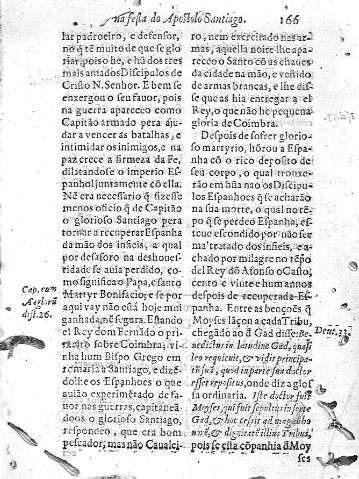 na festa do Apostolo Santiago. 166
lar padroeiro, e defensor,
no q̃ tẽ muito de que se glo
riar, pois o he, e hũ dos tres
mais amados Discipulos de
Cristo N. Senhor. E bem se
enxergou o seu fauor, pois
na guerra apareceo como
Capitão armado pera aju-
dar a vencer as batalhas, e
intimidar os inimigos, e na
paz crece a firmeza da Fe,
dilatandose o imperio Es-
panhol juntamente cõ ella.
Nẽ era necessario q̃ fizesse
menos officio q̃ de Capitão
o glorioso Santiago pera
tornar a recuperar Espanha
da mão dos infieis, a qual
por desaforo na deshones-
tidade se auia perdido, co-
mo significa o Papa, e santo
Martyr Bonifacio; e se por
aqui vay não està hoje mui
ganhada, nẽ segura. Estando
el Rey dom Fernãdo o pri-
meiro sobre Coimbra; vi-
nha hum Bispo Grego em
romaria a Santiago, e dizẽ-
dolhe os Espanhoes o que
auião experimẽtado de fa-
uor nas guerras, capitanea-
dos o glorioso Santiago,
respondeo, que era bom
pescador; mas não Caualei-
Cap. cum
Anglorũ
dist. 26.
ro, nem exercitado nas ar-
mas, aquella noite lhe apa-
receo o Santo cõ as chaues
da cidade na mão, e vestido
de armas brancas, e lhe dis-
se que as hia entregar a el
Rey, o que não he pequena
gloria de Coimbra.
Despois de sofrer glorio-
so martyrio, hõrou a Espa-
nha cõ o rico deposito de
seu corpo, o qual trou-
xerão em hũa nao os Discipu-
los Espanhoes q̃ se acharão
na sua morte, o qual no tẽ-
po q̃ se perdeo Espanha, es-
teue escondido por não ser
mal tratado dos infieis, e a-
chado por milagre no tẽpo
del Rey dõ Afonso o Casto,
cento e vinte e hum annos
despois de recuperada Es-
panha. Entre as benções q̃
Moyses lançou a cada Tribu,
chegãdo ao q̃ Gad disse: Be-
nedictus in latitudine Gad, quasi
leo requieuit, & vidit principa-
tũ suũ, quod in parte sua doctor
esset repositus, onde diz a glos
sa ordinaria. Iste doctor fuit
Moyses, qui fuit sepultus in sorte
Gad, & hoc cessit ad magnũ ho
norẽ, & dignitatẽ illius Tribus,
pois se esta cõpanhia dẽ Moy
ses
Deut. 33.